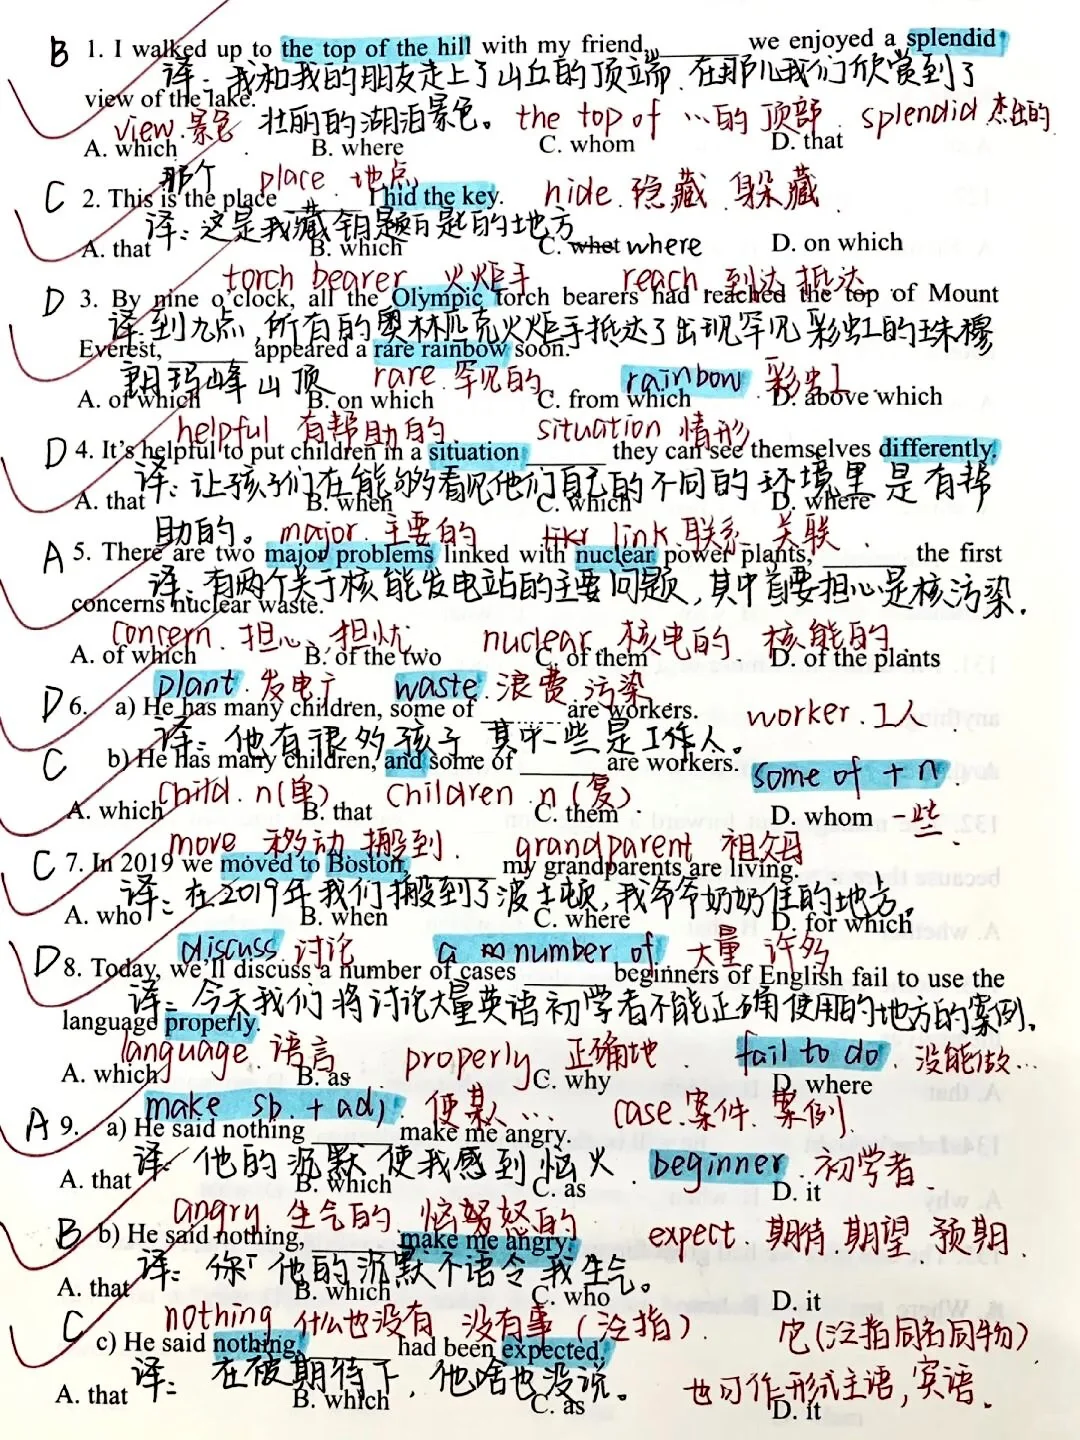 B 1. I walked up to the top of the hill with my friend, ______ we enjoyed a splendid
译：我和我的朋友走上了山丘的顶端，在那儿我们欣赏到了
view of the lake.
view 景色 壮丽的湖泊景色。 the top of …的顶部 splendid 杰出的
A. which B. where C. whom D. that
那个 place 地点
C 2. This is the place ______ I hid the key. hide 隐藏 躲藏
译：这是我藏钥匙的地方
A. that B. which C. where D. on which
torch bearer 火炬手 reach 到达 抵达
D 3. By nine o'clock, all the Olympic torch bearers had reached the top of Mount
译：到九点，所有的奥林匹克火炬手抵达了出现罕见彩虹的珠穆
Everest, ______ appeared a rare rainbow soon.
朗玛峰山顶 rare 罕见的 rainbow 彩虹
A. of which B. on which C. from which D. above which
helpful 有帮助的 situation 情形
D 4. It's helpful to put children in a situation ______ they can see themselves differently.
译：让孩子们在能够看见他们自己的不同的环境里是有帮
A. that B. when C. which D. where
助的。 major 主要的 link 联系 关联
A 5. There are two major problems linked with nuclear power plants, ______ the first
译：有两个关于核能发电站的主要问题，其中首要担心是核污染.
concerns nuclear waste.
concern 担心、担忧 nuclear 核电的 核能的
A. of which B. of the two C. of them D. of the plants
plant 发电厂 waste 浪费 污染
D 6. a) He has many children, some of ______ are workers. worker 工人
译：他有很多孩子 其中一些是工作人。
C b) He has many children, and some of ______ are workers. some of + n
child n(单) children n(复)
A. which B. that C. them D. whom 一些
move 移动 搬到 grandparent 祖父母
C 7. In 2019 we moved to Boston, ______ my grandparents are living.
译：在2019年我们搬到了波士顿，我爷爷奶奶住的地方。
A. who B. when C. where D. for which
discuss 讨论 a number of 大量 许多
D 8. Today, we'll discuss a number of cases ______ beginners of English fail to use the
译：今天我们将讨论大量英语初学者不能正确使用的地方的案例.
language properly.
language 语言 properly 正确地 fail to do 没能做…
A. which B. as C. why D. where
make sb. + adj 使某人… case 案件 案例
A 9. a) He said nothing ______ make me angry.
译：他的沉默使我感到恼火 beginner 初学者
A. that B. which C. as D. it
angry 生气的 恼怒的 expect 期待 期望 预期
B b) He said nothing, ______ make me angry.
译：他的沉默不语令我生气。
A. that B. which C. who D. it
nothing 什么也没有 没有事（泛指） 它(泛指同名同物)
C c) He said nothing, ______ had been expected.
译：在被期待下，他啥也没说。 也可作形式主语，宾语.
A. that B. which C. as D. it